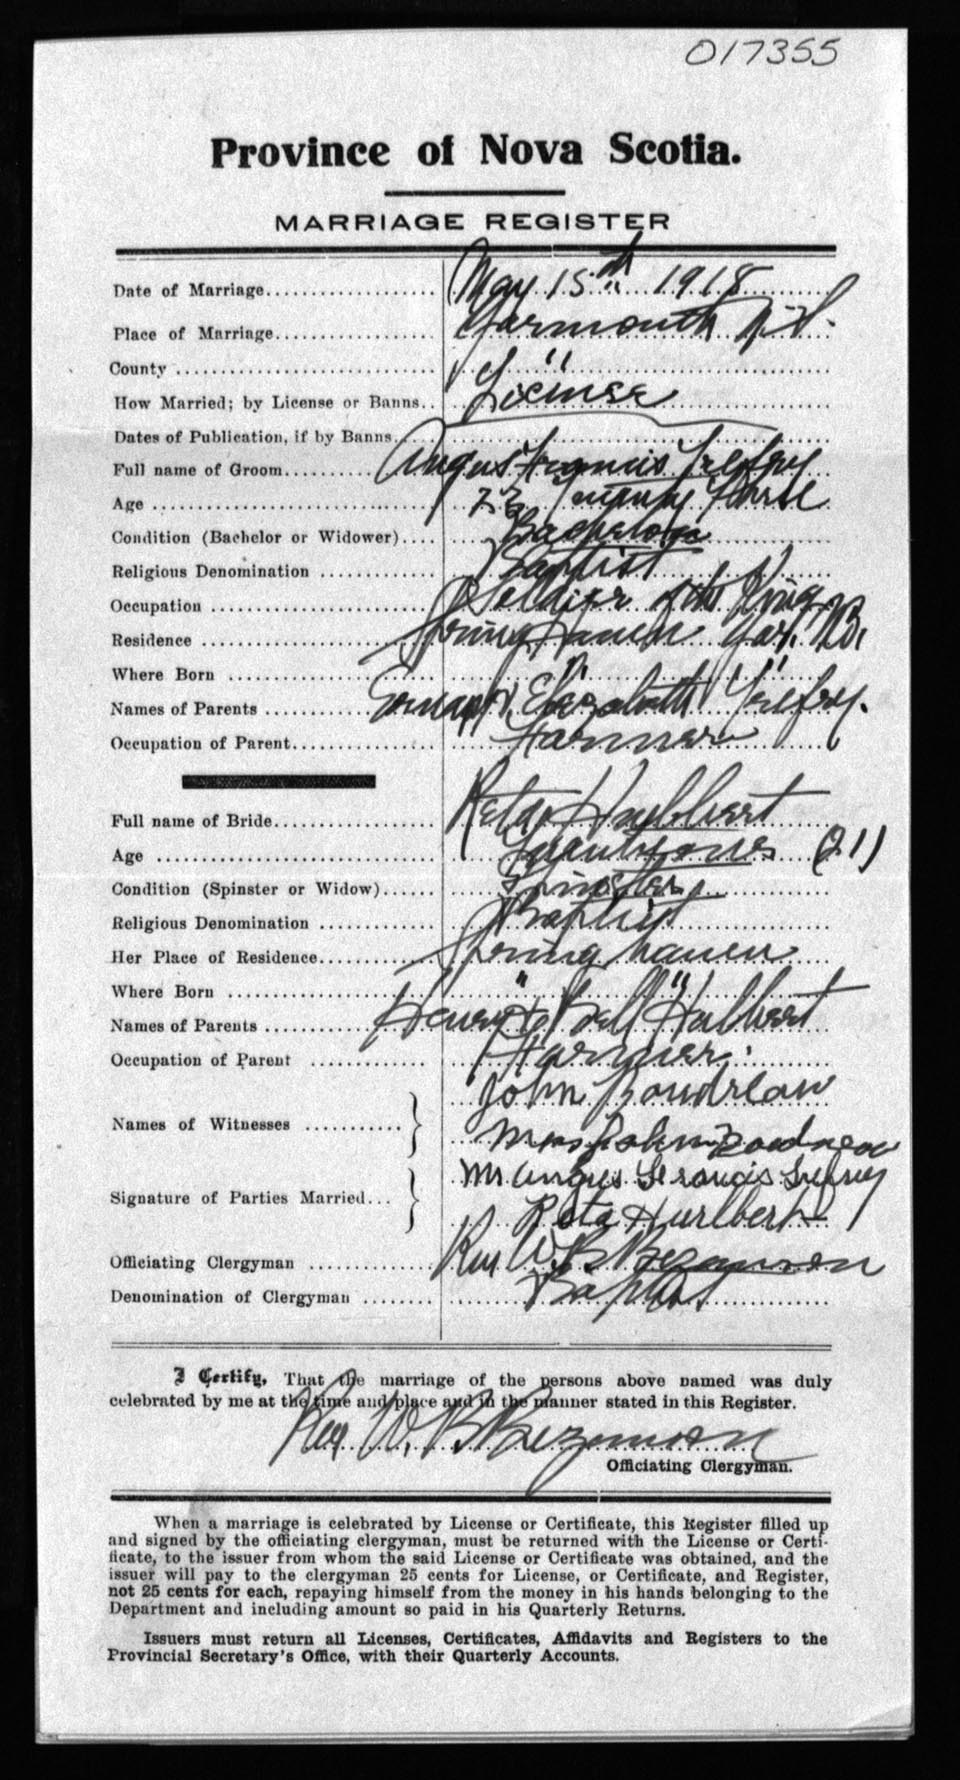 017355
Province of Nova Scotia.
MARRIAGE REGISTER
Date of Marriage.................... May 15th 1918
Place of Marriage................. Yarmouth N.S.
County ........................... " "
How Married; by License or Banns.. License
Dates of Publication, if by Banns..
Full name of Groom............... Angus Francis Trefry
Age ............................ 23 Twenty Three
Condition (Bachelor or Widower).... Bachelor
Religious Denomination ............ Baptist
Occupation ....................... Soldier of the King
Residence ....................... Springhaven Yar.
Where Born ..................... " "
Names of Parents ................. & Elizabeth Trefry.
Occupation of Parent.............. Farmer
Full name of Bride................ Reta Hurlbert
Age ........................... Twenty one (21)
Condition (Spinster or Widow)...... Spinster
Religious Denomination ............ Baptist
Her Place of Residence............ Springhaven
Where Born ..................... " "
Names of Parents ................. Henry & Bell Hulbert
Occupation of Parent ............ Farmer.
Names of Witnesses ........... } John Boudreau
Mrs John Boudreau
Signature of Parties Married... } Mr Angus Francis Trefrey
Reta Hurlbert
Officiating Clergyman ............ Rev W. B Bezanson
Denomination of Clergyman ........ Baptist
I Certify, That the marriage of the persons above named was duly
celebrated by me at the time and place and in the manner stated in this Register.
Rev W. B Bezanson
Officiating Clergyman.
When a marriage is celebrated by License or Certificate, this Register filled up
and signed by the officiating clergyman, must be returned with the License or Certi-
ficate, to the issuer from whom the said License or Certificate was obtained, and the
issuer will pay to the clergyman 25 cents for License, or Certificate, and Register,
not 25 cents for each, repaying himself from the money in his hands belonging to the
Department and including amount so paid in his Quarterly Returns.
Issuers must return all Licenses, Certificates, Affidavits and Registers to the
Provincial Secretary's Office, with their Quarterly Accounts.